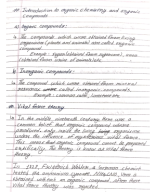 ** Introduction to organic chemistry and organic
compounds
a) Organic compounds:
The compounds which were obtained from living
organisms (plants and animals) are called organic
compound
Example: sugar obtained from sugarcane, urea
obtained from urine of animals.
b) Inorganic compounds:
The compound which were obtained from mineral
are called inorganic compounds.
Example: common salt,
** Vital force theory
In the middle nineteenth century there was a
common belief that organic
produced only
under the influence of
This means that organic compound cannot be prepared
artificially. This theory is known as vital force
theory.
In 1828, Friedrich Wohler a German chemist
heated
obtained urea an organic compound, after that
vital force theory was rejected.